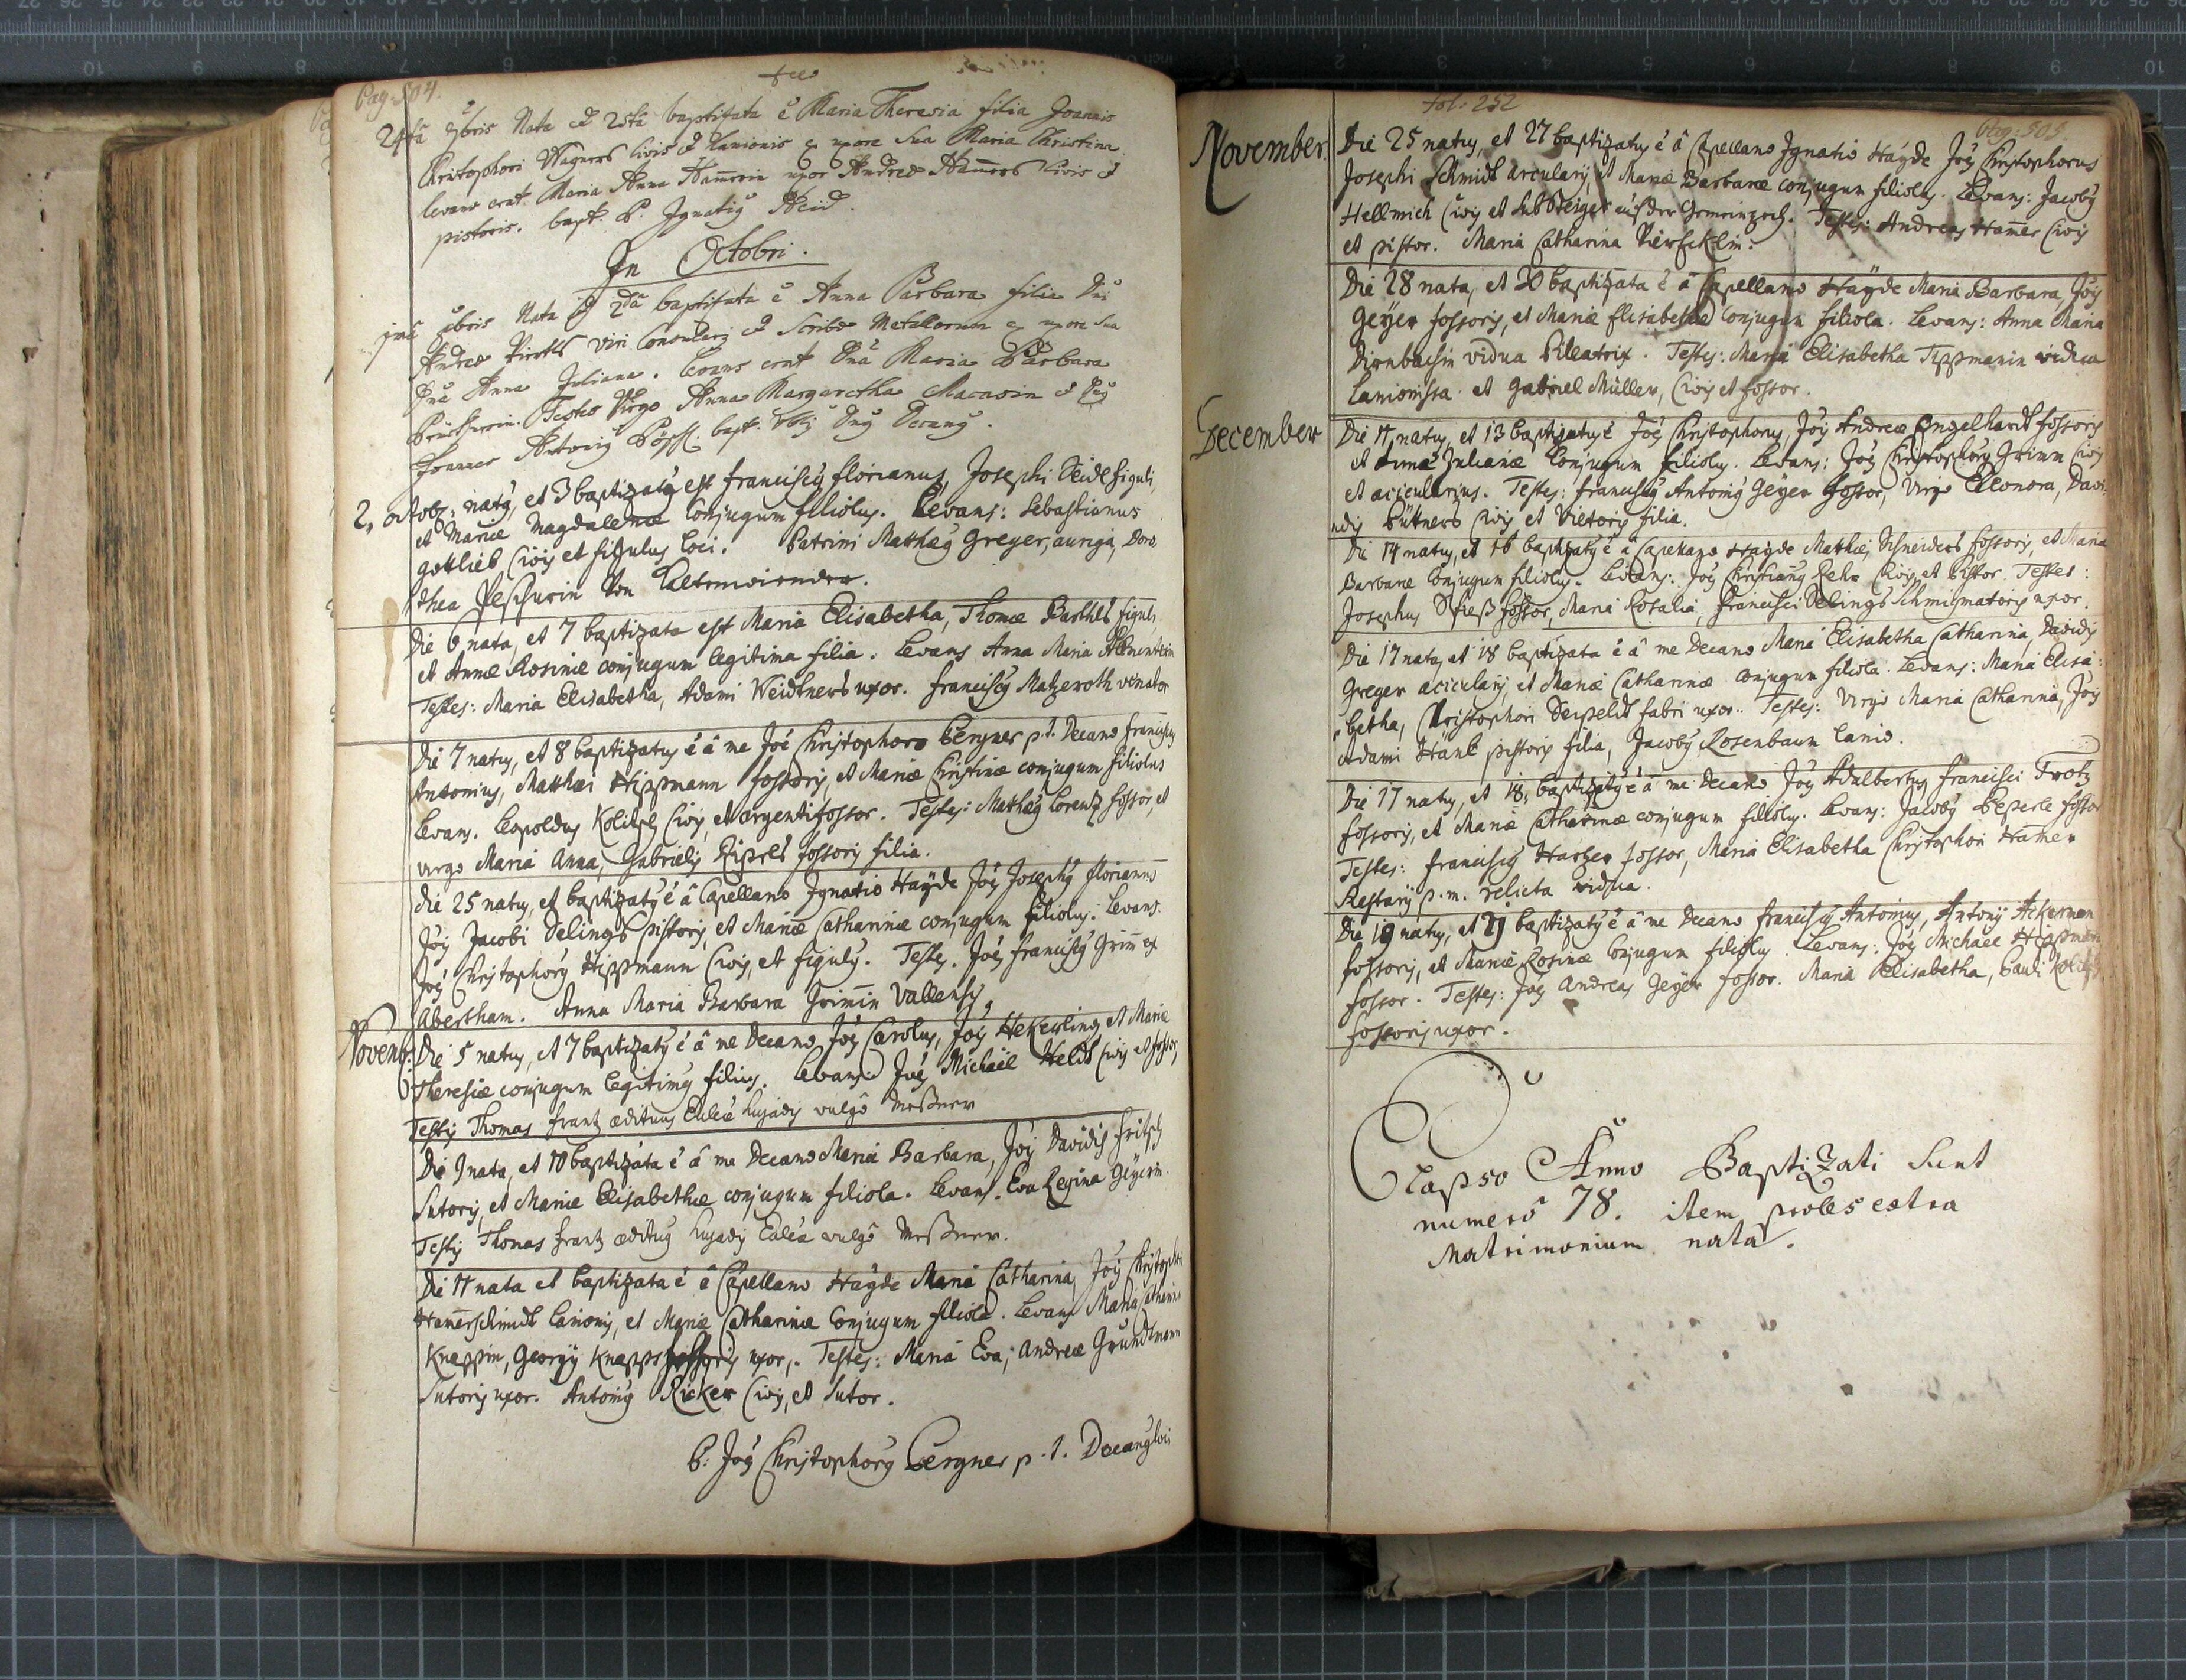 Pag: 504.
24tâ 7bris Nata et 25tâ baptisata ê Maria Theresia filia Joannis
Christophori Wagners Civis et Lanionis ex uxore sua Maria Christina
levans erat Maria Anna Ham̄erin uxor Andreæ Ham̄ers Civis et
pistoris. bapt. P. Ignatig Heid.
In Octobri.
8bris Nata et 2dâ baptisata ê Anna Barbara filia Dñi
Andreæ Viri Consularis et Scribæ Metallorum ex uxore sua
Dnâ Anna Juliana. levans erat Dnâ Maria Barbara
Testes Virgo Anna Margaretha et
Joannes bapt.
2, octob: natg, et 3 baptizatg est franciscg florianus, Josephi Seidl figuli,
et Mariæ Magdalenæ Conjugum filiolus. Levans: Sebastianus
gottlieb Civis et figulus loci. Patrini Mathæg Greger, auriga, Doro
thea
Die 6 nata, et 7 baptizata est Maria Elisabetha, Thomæ Barthls figuli
et Annæ Rosinæ conjugum legitima filia. Levans Anna Maria
Testes: Maria Elisabetha, Adami Weidtners uxor. franciscg Matzeroth venator
Die 7 natus, et 8 baptizatus ê â me Joê Christophoro Bergner p.t. Decano franciscus
Antonius, Matthæi Hippmann fossoris, et Mariæ Christinæ conjugum filiolus
Levans. Leopoldus Kolitsch Civis, et argentifossor. Testes: Mathæg Lorentz fossor, et
virgo Maria Anna, Gabrielis fossoris filia.
Die 25 natus, et baptizatg ê â Capellano Ignatio Hayde Joês Josephg florianus
Joîs Jacobi Selings pistoris, et Mariæ Catharinæ conjugum filiolus. Levans:
Joês Christophorg Hippmann Civis, et figulg. Testes. Joês franciscg Grim̄ ex
Abertham. Anna Maria Barbara Grim̄in Vallensis.
Novemb: Die 5 natus, et 7 baptizatg ê â me Decano Joês Carolus, Joîs Hekerling et Mariæ
Theresiæ conjugum legitimg filius. Levans: Joês Michaël Heldt Civis et fossor,
Testis Thomas frantz ædituus Eccl̄iæ hujadis vulgô Meßner
Die 9 nata, et 10 baptizata ê â me Decano Maria Barbara, Joîs Davidis fritsch
Sutoris, et Mariæ Elisabethæ conjugum filiola. Levans. Eva Regina Geyerin.
Testis Thomas frantz æditug hujadis Eccl̄iæ vulgô Meßner.
Die 11 nata et baptizata ê â Capellano Hayde Maria Catharina, Joîs Christoph
Ham̄erschmidt Lanionis, et Mariæ Catharinæ Conjugum filiola. Levans Maria Catharina
Knæppin, Georgij Knæpps fossoris uxor. Testes: Maria Eva, Andreæ Grundtmann
Sutoris uxor. Antonig Ricker Civis, et Sutor.
P: Joês Christophorg Bergner p.t. Decang loci
fol: 252
Pag: 505.
November. Die 25 natus, et 27 baptizatus ê â Capellano Ignatio Hayde Joês Christophorus
Josephi Schmidt arcularij, et Mariæ Barbaræ conjugum filiolus. Levans: Jacobg
Hellmich Civis et Testes: Andreas Ham̄er Civis
et pistor. Maria Catharina
Die 28 nata, et 30 baptizata ê â Capellano Hayde Maria Barbara, Joîs
Geÿer fossoris, et Mariæ Elisabethæ Conjugum filiola. Levans: Anna Maria
vidua Pileatrix. Testes: Maria Elisabetha Tippmanin vidua
Lanionissa. et Gabriel Müller, Civis et fossor.
December Die 11 natus, et 13 baptizatus ê Joês Christophorus, Joîs Andreæ Engelhardt fossoris
et Annæ Julianæ Conjugum filiolus. Levans: Joês Christophorg Grimm Civis
et acicularius. Testes: franciscg Antonig Geÿer fossor, Virgo Elleonora, Davi-
dis Püttners Civis et Vietoris filia.
Die 14 natus, et 16 baptizatg ê â Capellano Hayde Matthæi Schneiders fossoris, et Maria
Barbaræ Conjugum filiolus. Levans: Joês Christiang Civis, et Pistor. Testes:
Josephus fossor, Maria Rosalia, francisci Selings uxor.
Die 17 nata, et 18 baptizata ê â me Decano Maria Elisabetha Catharina, Davidis
Greger acicularij, et Mariæ Catharinæ conjugum filiola. Levans: Maria Elisa:
betha, Christophori fabri uxor. Testes: Virgo Maria Catharina, Joîs
Adami Hank pistoris filia, Jacobg Rosenbaum Lanio.
Die 17 natus, et 18, baptizatg ê â me Decano, Joês Adalbertus, francisci Trotz
fossoris, et Mariæ Catharinæ conjugum filiolus. Levans: Jacobg fossor
Testes: franciscg fossor, Maria Elisabetha Christophori Ham̄er
Restarij p.m. relicta vidua.
Die 19 natus, et 21 baptizatg ê â me Decano franciscg Antonius, Antonij Ackerman
fossoris, et Mariæ Rosinæ Conjugum filiolus. Levans: Joês Michaël Hippman
fossor. Testes: Joês Andreas Geÿer fossor. Maria Elisabetha, Pauli Kolitsch
fossoris uxor.
Elapso Anno Baptizati sunt
numerô 78. item proles extra
Matrimonium nata.